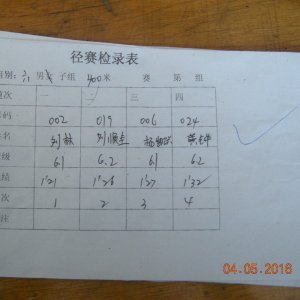 径赛检录表
组别: 六 男 子组 400米 赛 第 组
道次 一 二 三 四
号码 002 019 006 024
姓名 刘
班级 6.1 6.2 6.1 6.2
成绩 1'21 1'26 1'27 1'32
名次 1 2 3 4
备注
04.05.2016